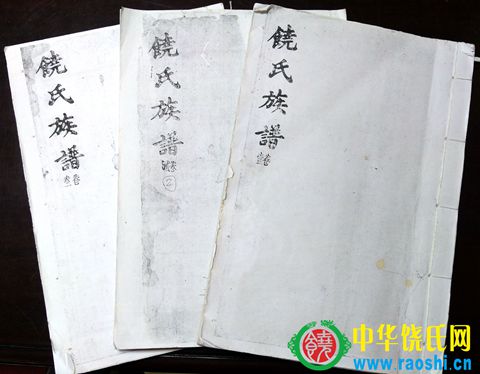 饒氏族譜
饒氏族譜
②
饒氏族譜
饒
中华饶氏网
www.raoshi.cn